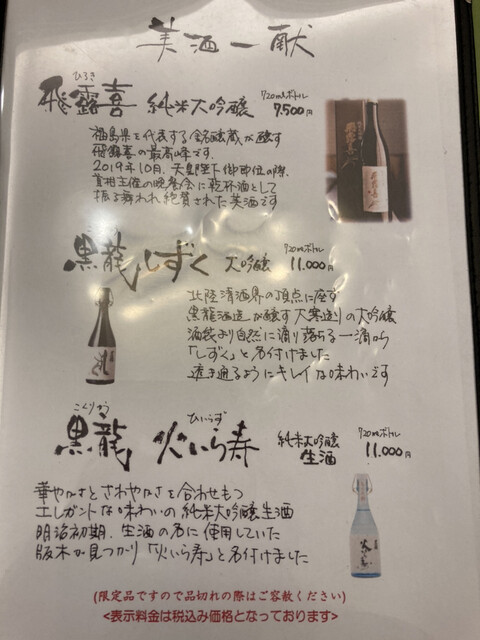 美酒一献
ひろき
飛露喜 純米大吟醸 720mlボトル 7,500円
福島県を代表する銘醸蔵が醸す
飛露喜の最高峰です。
2019年10月、天皇陛下御即位の際、
首相主催の晩餐会に乾杯酒として
振る舞われ絶賛された美酒です
こくりゅう
黒龍 しずく 大吟醸 720mlボトル 11,000円
北陸清酒界の頂点に座す
黒龍酒造が醸す大寒造りの大吟醸
酒袋より自然に滴り落ちる一滴から
「しずく」と名付けました
透き通るようにキレイな味わいです
こくりゅう ひいらず
黒龍 火いら寿 純米大吟醸 生酒 720mlボトル 11,000円
華やかさとさわやかさを合わせもつ
エレガントな味わいの純米大吟醸生酒
明治初期、生酒の名に使用していた
版木が見つかり「火いら寿」と名付けました
(限定品ですので品切れの際はご容赦ください)
<表示料金は税込み価格となっております>